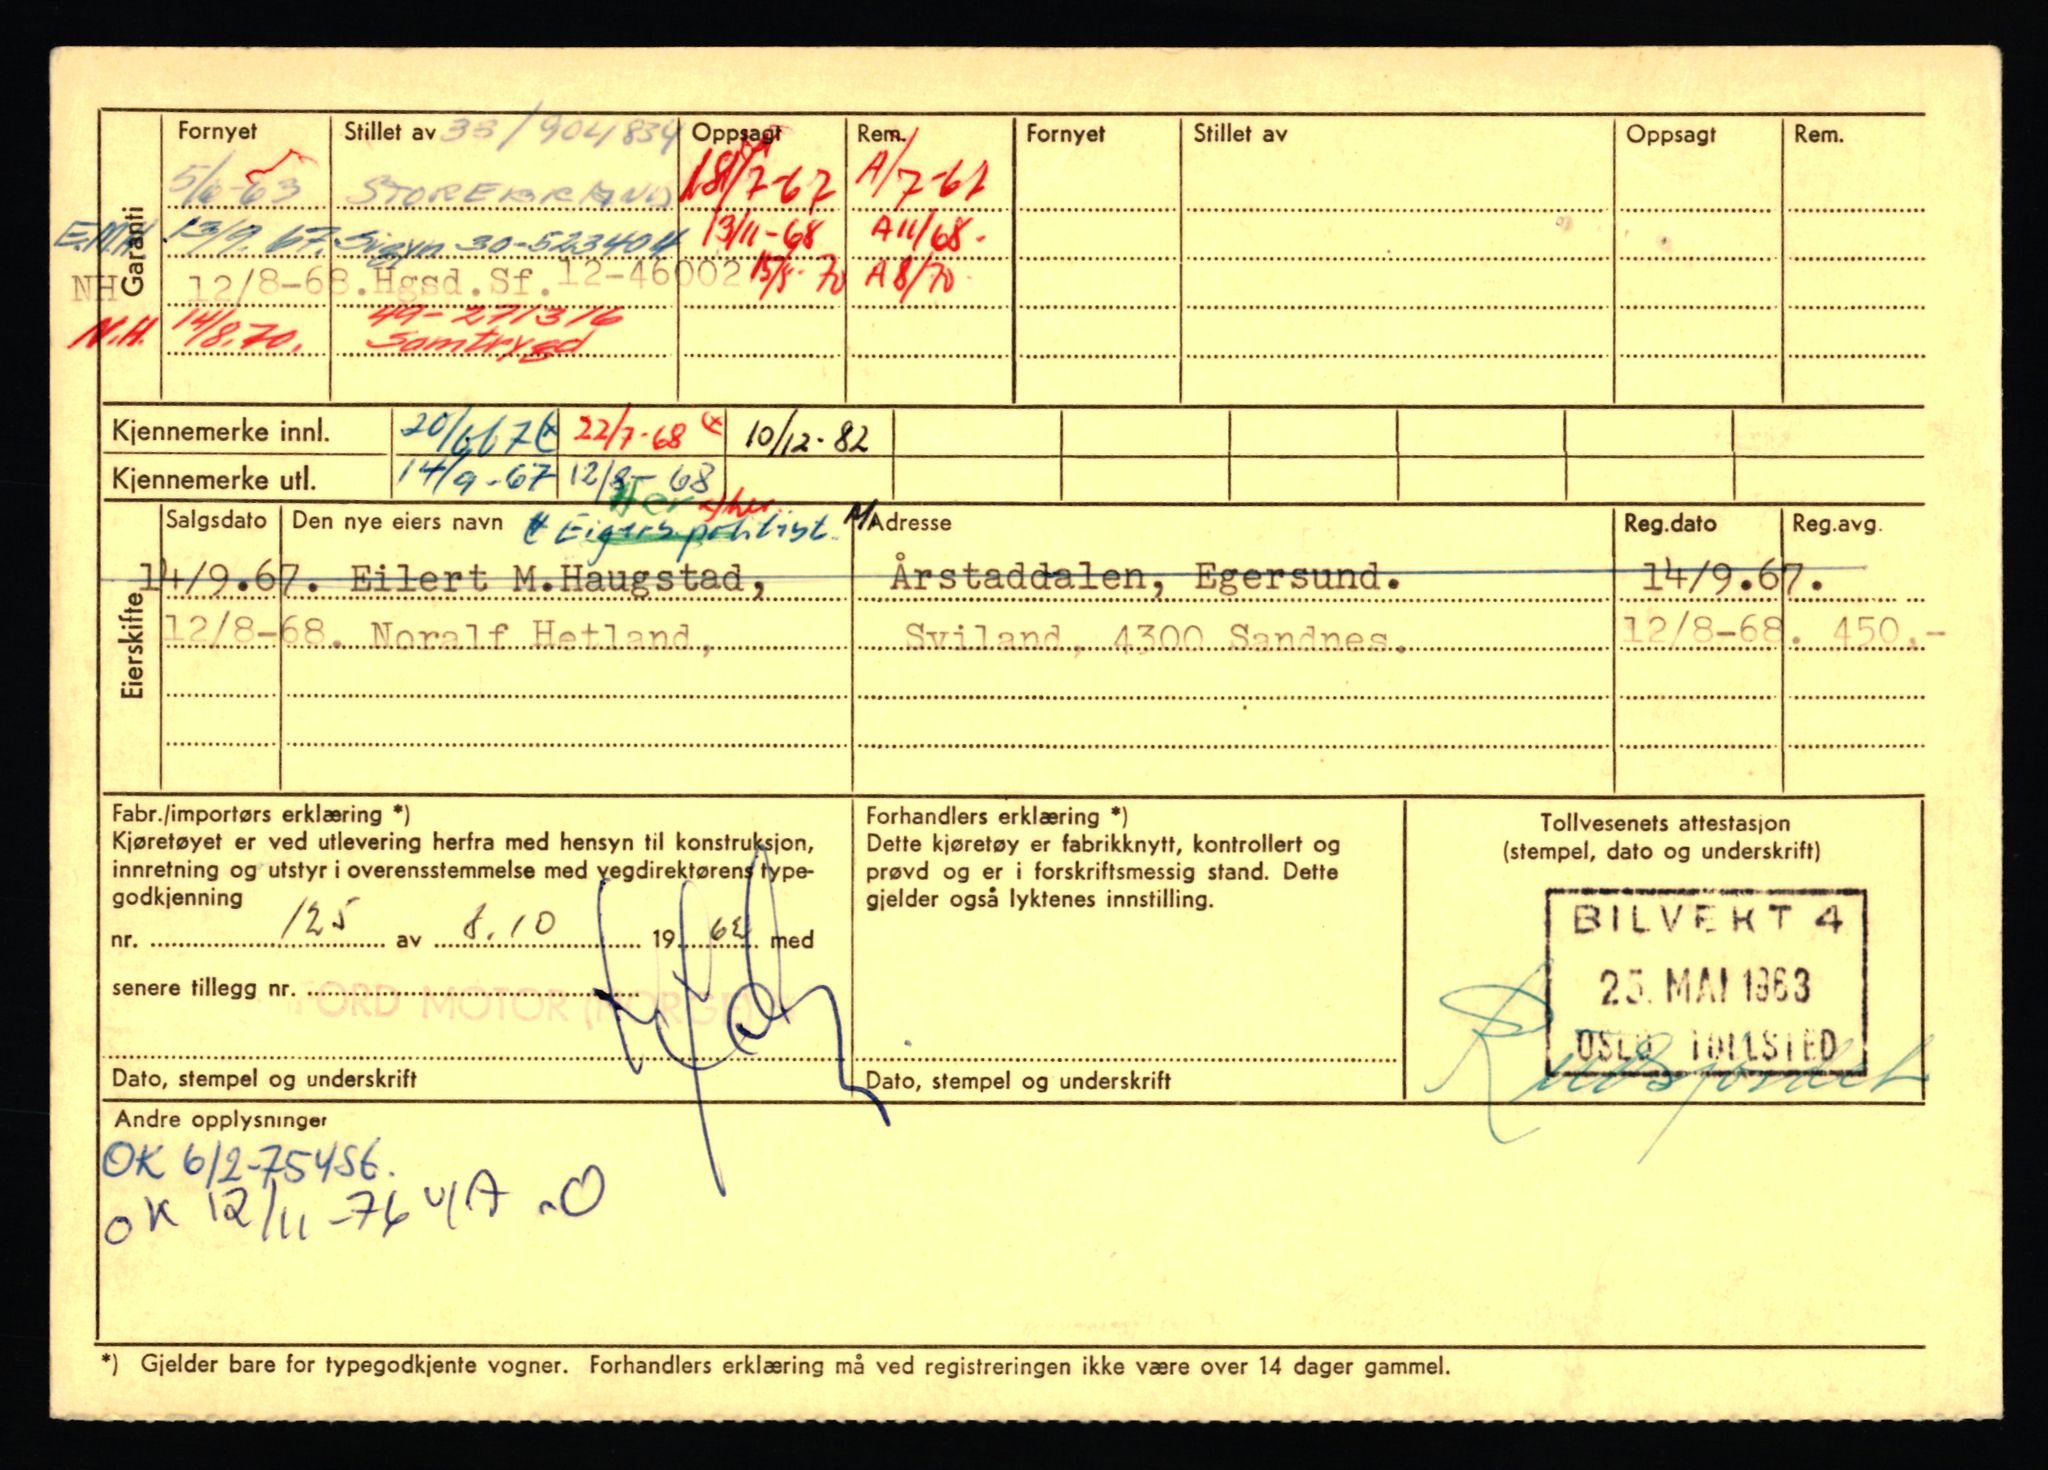 Garanti
Fornyet Stillet av 33/904834 Oppsagt Rem. Fornyet Stillet av Oppsagt Rem.
5/6-63 STOREBRAND 18/7-67 A/7-67
E.M.H 13/9.67. Sigyn 30-523404 13/11-68 A11/68.
NH 12/8-68. Hgsd.Sf. 12-46002 15/5-70 A8/70
N.H. 14/8.70. 49-271316
Samtrygd
Kjennemerke innl. 20/6 67 22/7-68 10/12-82
Kjennemerke utl. 14/9-67 12/8-68
Her her
Eierskifte
Salgsdato Den nye eiers navn Eigers politist. Adresse Reg.dato Reg.avg.
14/9.67. Eilert M.Haugstad, Årstaddalen, Egersund. 14/9.67.
12/8-68. Noralf Hetland, Sviland, 4300 Sandnes. 12/8-68. 450,-
Fabr./importørs erklæring *)
Kjøretøyet er ved utlevering herfra med hensyn til konstruksjon,
innretning og utstyr i overensstemmelse med vegdirektørens type-
godkjenning
nr. 125 av 8.10 1962 med
senere tillegg nr.
FORD MOTOR (NORGE)
Dato, stempel og underskrift
Forhandlers erklæring *)
Dette kjøretøy er fabrikknytt, kontrollert og
prøvd og er i forskriftsmessig stand. Dette
gjelder også lyktenes innstilling.
Dato, stempel og underskrift
Tollvesenets attestasjon
(stempel, dato og underskrift)
BILVERT 4
25. MAI 1963
OSLO TOLLSTED
Andre opplysninger
OK 6/2-75
OK 12/11-76
*) Gjelder bare for typegodkjente vogner. Forhandlers erklæring må ved registreringen ikke være over 14 dager gammel.